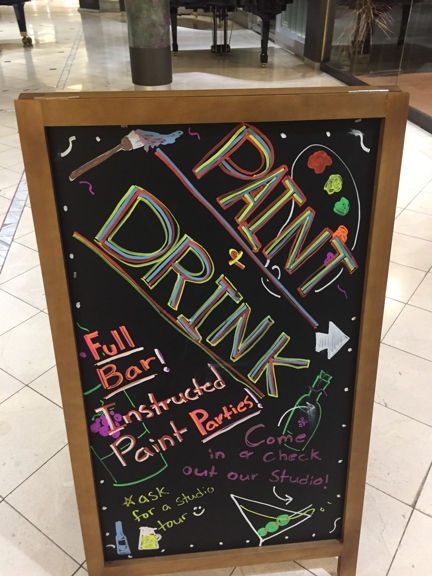 PAINT
+
DRINK
Full
Bar!
Instructed
Paint Parties!
Come
in & check
out our Studio!
*ask
for a studio
tour